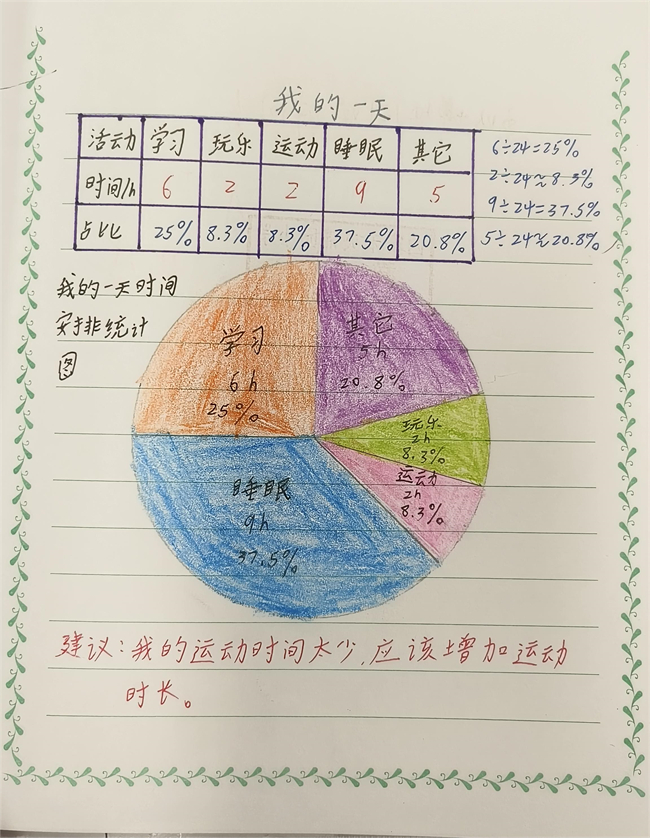 我的一天
活动 学习 玩乐 运动 睡眠 其它
时间/h 6 2 2 9 5
占比 25% 8.3% 8.3% 37.5% 20.8%
6÷24=25%
2÷24≈8.3%
9÷24=37.5%
5÷24≈20.8%
我的一天时间
安排统计
图
学习
6h
25%
其它
5h
20.8%
玩乐
2h
8.3%
运动
2h
8.3%
睡眠
9h
37.5%
建议:我的运动时间太少,应该增加运动
时长。